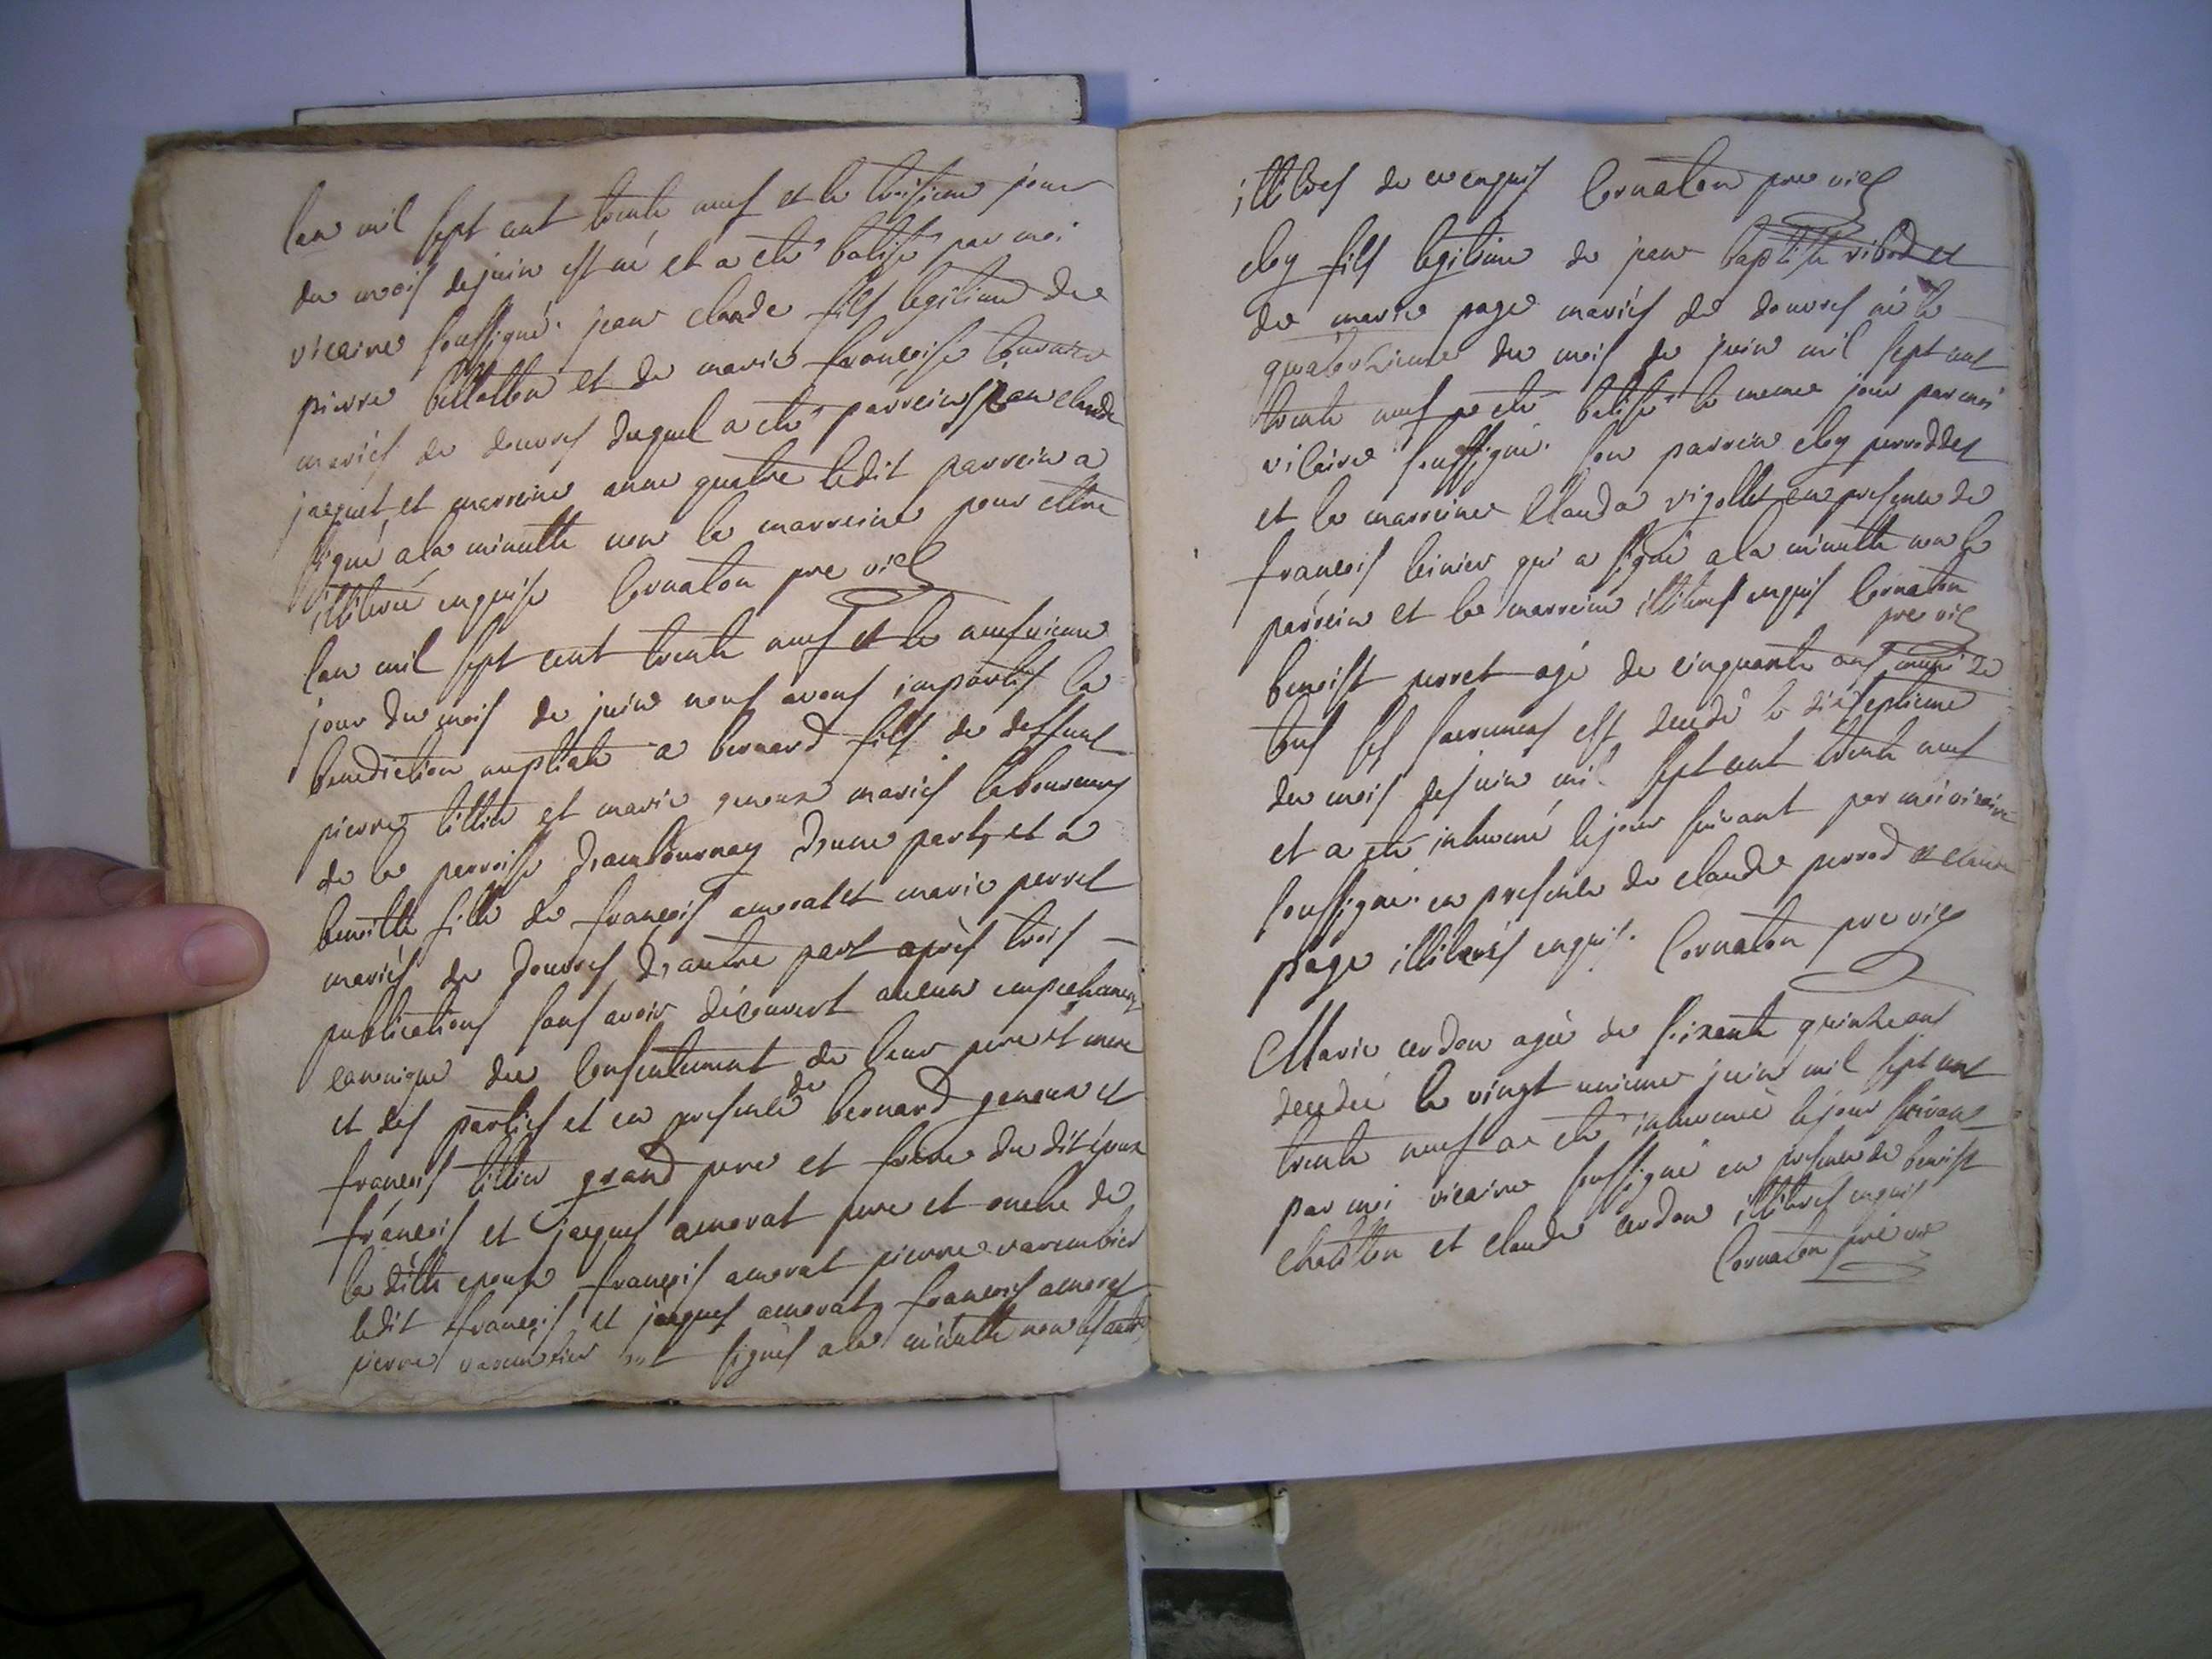 lan mil sept cent trente neuf et le troisieme jour
du mois de juin est né et a eté batisé par moi
vicaire soussigné jean claude fils legitime de
pierre billallon et de marie françoise tournier
mariés de douvres duquel a eté parrein jean claude
jacquet et marreine anne quatre ledit parrein a
signé a la minutte non la marreine pour ettre
illiteréé enquise Cornaton pre vic
lan mil sept cent trente neuf et le neufvieme
jour du mois de juin nous avons impartis la
benediction nuptiale a bernard fils de deffunt
pierre tillier et marie genoux mariés laboureurs
de la perroisse d'ambournay d'une part, et a
benoitte fille de françois amorat et marie perret
mariés de douvres d'autre part après trois
publications sans avoir découvert aucun empechement
canonique du consentement de leur pere et mere
et des parties et en presence de bernard genoux et
françois tillier grand pere et frere du dit époux
françois et jacques amorat pere et oncle de
la ditte epouse françois amorat pierre varembier
ledit françois et jacques amorat, françois amorat
pierre varembier ont signés a la minutte non les autres
illitérés de ce enquis Cornaton pre vic
eloy fils legitime de jean baptiste ribod et
de marie page mariés de douvres né le
quatorzieme du mois de juin mil sept cent
trente neuf a eté batisé le meme jour par moi
vicaire soussigné son parrein eloy perroddet
et la marreine Clauda vigollet en presence de
françois leinier qui a signé a la minutte non le
parrein et la marreine illiterés enquis Cornaton
pre vic
benoist perret agé de cinquante ans muni de
tous ses sacremens est decedé le dixseptieme
du mois de juin mil sept cent trente neuf
et a eté inhumé le jour suivant par moi vicaire
soussigné en presence de claude perrod et claude
page illiterés enquis. Cornaton pre vic
Marie cerdon agée de soixante quinze ans
decedée le vingt unieme juin mil sept cent
trente neuf a eté inhumée le jour suivant
par moi vicaire soussigné en presence de benoist
chatillon et claude cerdon illiterés enquis
Cornaton pre vic